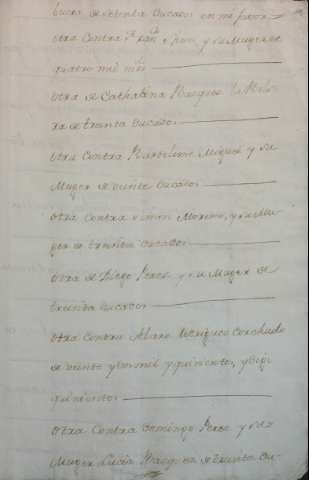 de setenta ducados en mi favor
otra contra Fran.co y su Muger de
quatro mil mrs
otra de Cathalina Vasquez
de treinta ducados
otra Contra Bartolome Miguel y su
Muger de veinte ducados
otra contra Simon Moreno, y su Mu-
ger de treinta ducados
otra de Diego Perez y su Muger de
treinta ducados
otra contra Alvaro
de veinte y dos mil y quinientos, y
otra Contra Domingo Perez y su
Muger Lucia Vasquez de treinta du-